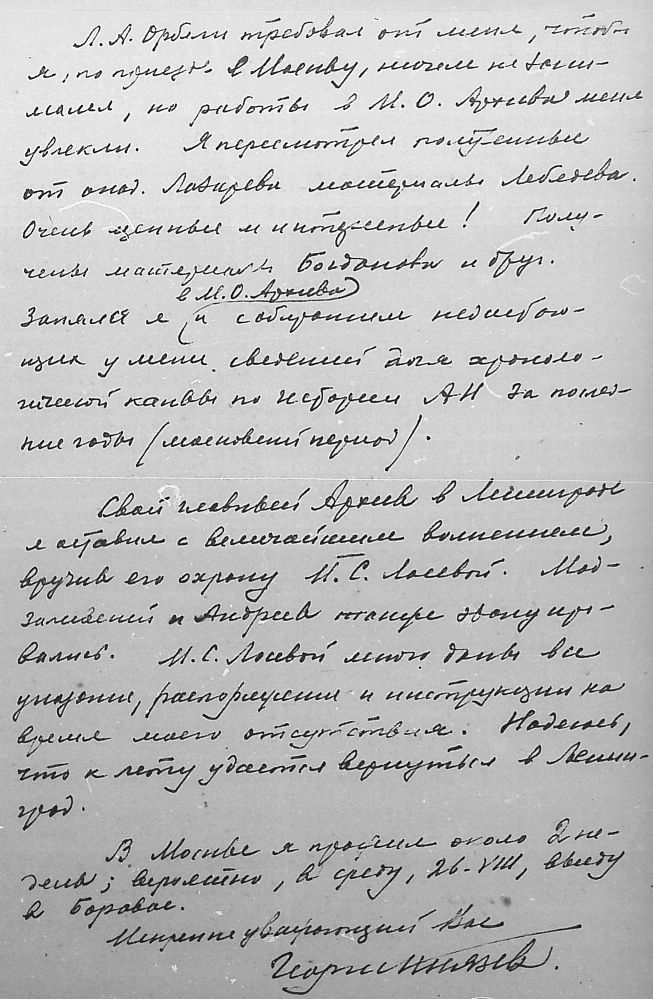 Л. А. Орбели требовал от меня, чтобы
я, по приезде в Москву, ничем не зани-
мался, но работы в М. О. Архива меня
увлекли. Я пересмотрел полученные
от акад. Лазарева материалы Лебедева.
Очень ценные и интересные! Полу-
чены материалы Богданова и друг.
в М.О. Архива
Занялся я и собиранием недостаю-
щих у меня сведений для хроноло-
гической канвы по истории АН за послед-
ние годы (московский период).
Свой главный Архив в Ленинграде
я оставил с величайшим волнением,
вручив его охрану М. С. Лосевой. Мод-
залевский и Андреев также эвакуиро-
вались. М. С. Лосевой мною даны все
указания, распоряжения и инструкции на
время моего отсутствия. Надеюсь,
что к лету удастся вернуться в Ленин-
град.
В Москве я прожил около 2 не-
дель; вероятно, в среду, 26-VIII, выеду
в Боровое.
Искренне уважающий Вас
Георгий Князев.